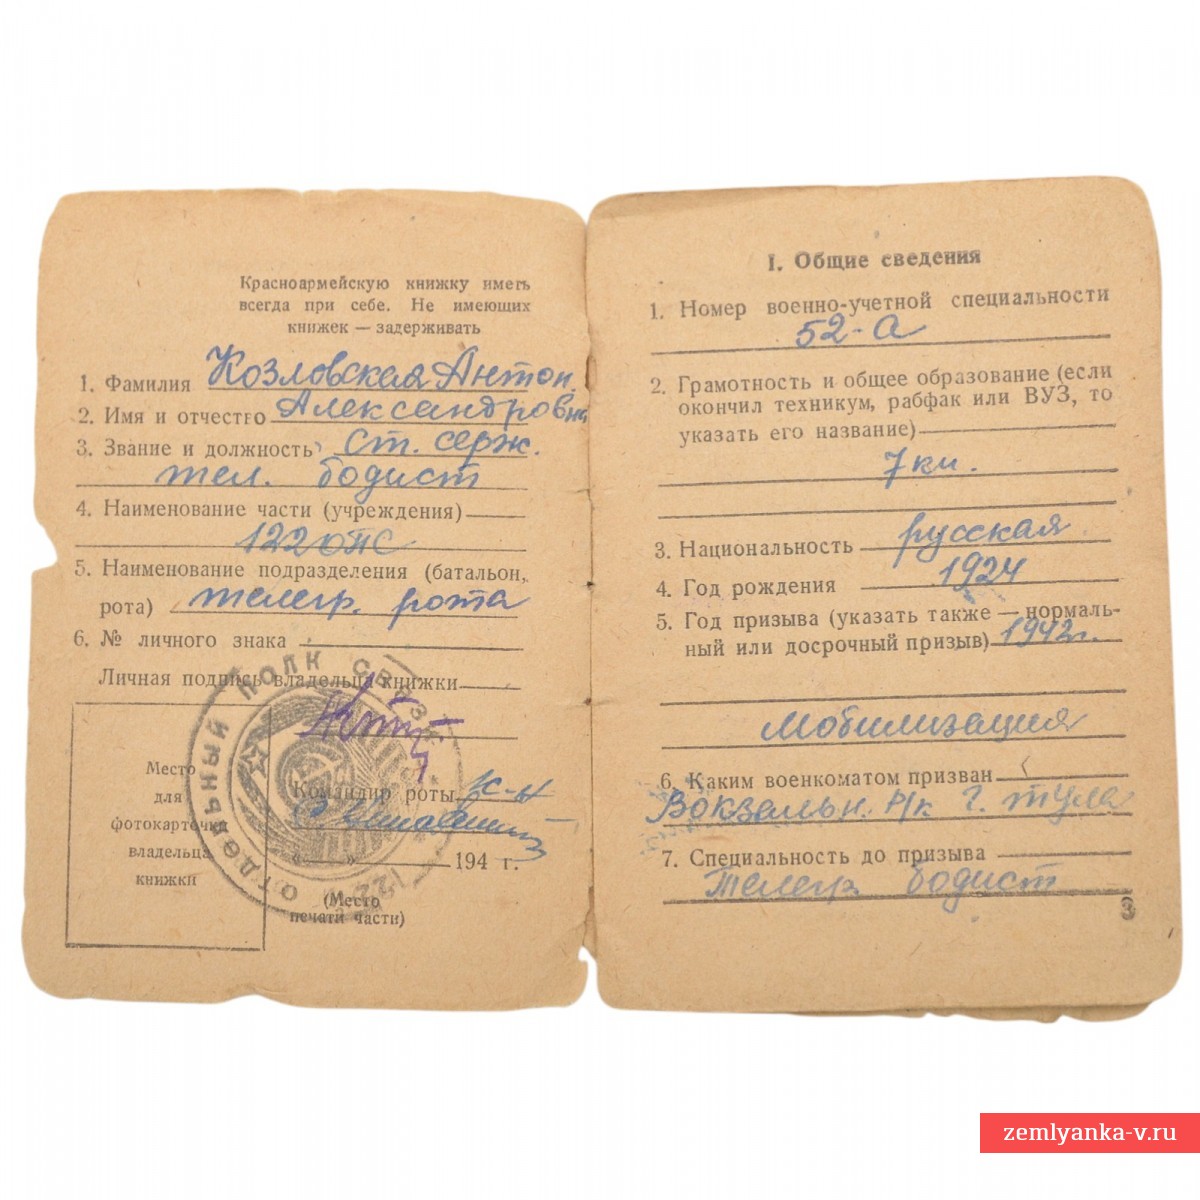 Красноармейскую книжку иметь
всегда при себе. Не имеющих
книжек — задерживать
1. Фамилия Козловская Антон.
2. Имя и отчество Александровна
3. Звание и должность ст. серж.
тел. бодист
4. Наименование части (учреждения)
122 отс
5. Наименование подразделения (батальон,
рота) телегр. рота
6. № личного знака
Личная подпись владельца книжки
Место
для
фотокарточки
владельца
книжки
Командир роты к-н
« » 194 г.
(Место
печати части)
ОТДЕЛЬНЫЙ ПОЛК СВЯЗИ
122
I. Общие сведения
1. Номер военно-учетной специальности
52-а
2. Грамотность и общее образование (если
окончил техникум, рабфак или ВУЗ, то
указать его название)
7 кл.
3. Национальность русская
4. Год рождения 1924
5. Год призыва (указать также — нормаль-
ный или досрочный призыв) 1942г.
Мобилизация
6. Каким военкоматом призван
Вокзальн. р/к г. Тула
7. Специальность до призыва
Телегр. бодист
3
zemlyanka-v.ru